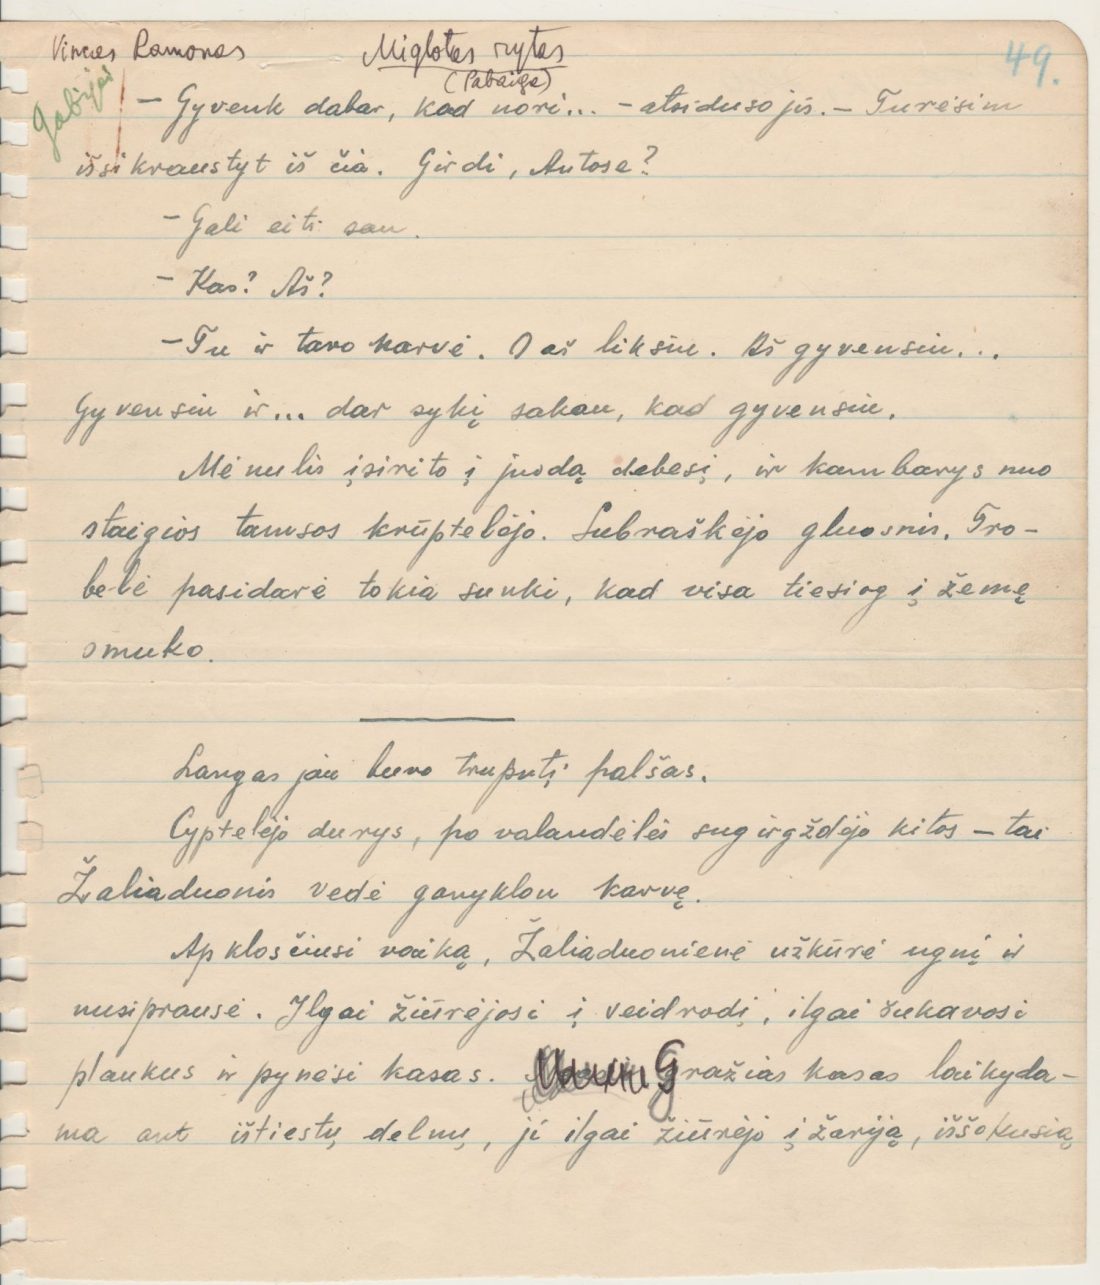 Vincas Ramonas Miglotas rytas 49.
(Pabaiga)
Gabijai
– Gyvenk dabar, kad nori... – atsiduso jis. – Turėsim
išsikraustyt iš čia. Girdi, Antose?
– Gali eiti sau.
– Kas? Aš?
– Tu ir tavo karvė. O aš liksiu. Aš gyvensiu...
Gyvensiu ir... dar sykį sakau, kad gyvensiu.
Mėnulis įsirito į juodą debesį, ir kambarys nuo
staigios tamsos krūptelėjo. Subraškėjo gluosnis. Tro-
belė pasidarė tokia sunki, kad visa tiesiog į žemę
smuko.
Langas jau buvo truputį palšas.
Cyptelėjo durys, po valandėlės sugirgždėjo kitos – tai
Žaliaduonis vedė ganyklon karvę.
Apklosčiusi vaiką, Žaliaduonienė užkūrė ugnį ir
nusiprausė. Ilgai žiūrėjosi į veidrodį, ilgai šukavosi
plaukus ir pynėsi kasas. Gražias kasas laikyda-
ma ant ištiestų delnų, ji ilgai žiūrėjo į žariją, iššokusią